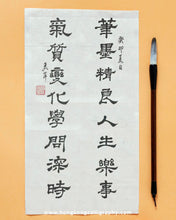 癸卯夏日
筆墨精良人生樂事
氣質變化學問深時